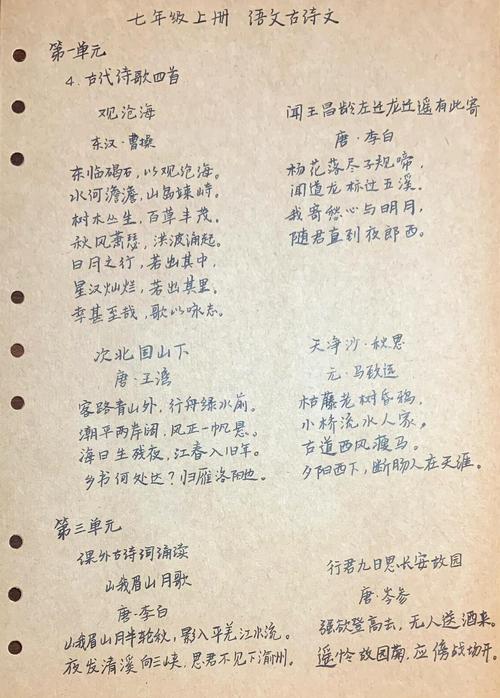 七年级上册 语文古诗文
第一单元
4.古代诗歌四首
观沧海
东汉·曹操
东临碣石，以观沧海。
水河澹澹，山岛竦峙。
树木丛生，百草丰茂。
秋风萧瑟，洪波涌起。
日月之行，若出其中，
星汉灿烂，若出其里。
幸甚至哉，歌以咏志。
闻王昌龄左迁龙迁遥有此寄
唐·李白
杨花落尽子规啼，
闻道龙标过五溪。
我寄愁心与明月，
随君直到夜郎西。
次北固山下
唐·王湾
客路青山外，行舟绿水前。
潮平两岸阔，风正一帆悬。
海日生残夜，江春入旧年。
乡书何处达？归雁洛阳边。
天净沙·秋思
元·马致远
枯藤老树昏鸦，
小桥流水人家，
古道西风瘦马。
夕阳西下，断肠人在天涯。
第三单元
课外古诗词诵读
峨眉山月歌
唐·李白
峨眉山月半轮秋，影入平羌江水流。
夜发清溪向三峡，思君不见下渝州。
行君九日思长安故园
唐·岑参
强欲登高去，无人送酒来。
遥怜故园菊，应傍战场开。